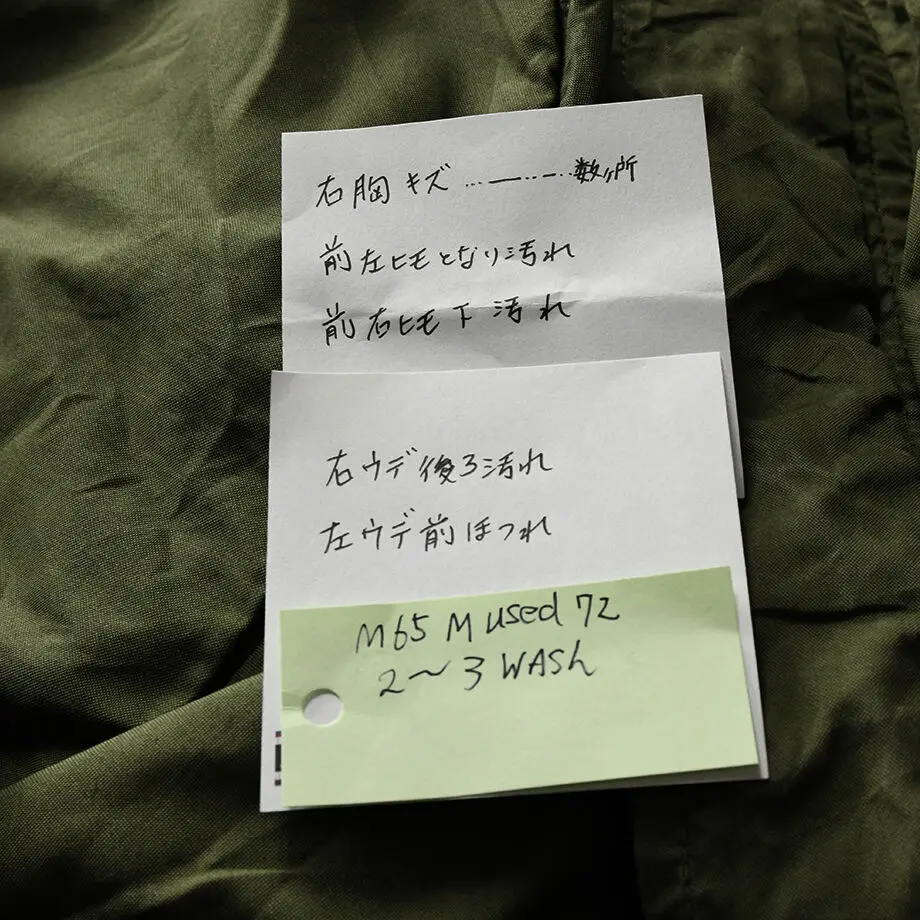 右胸キズ …—‥-‥数ヶ所
前左ヒモとなり汚れ
前右ヒモ下汚れ
右ウデ後ろ汚れ
左ウデ前ほつれ
M65 M used 72
2〜3 WASh